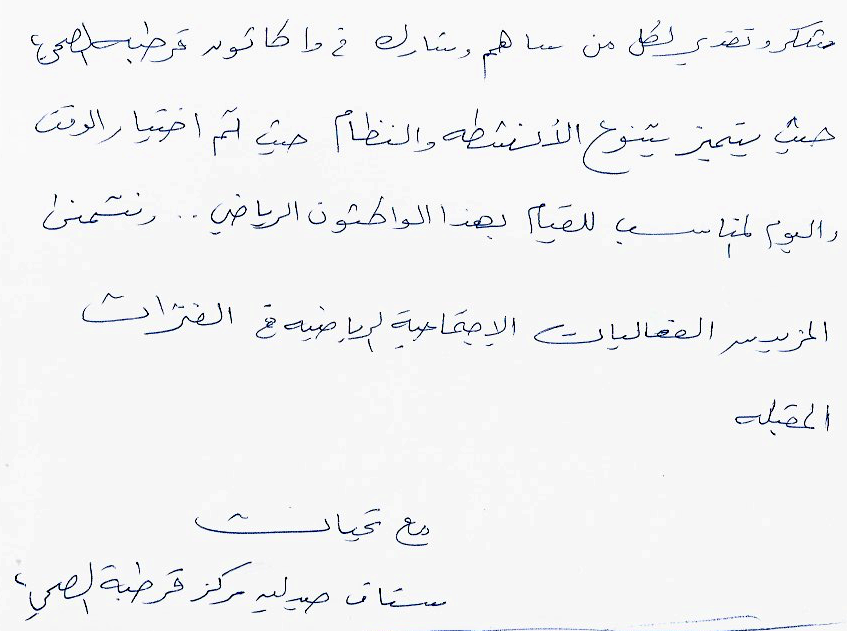 شكر وتقدير لكل من ساهم وشارك في واكاثون قرطبه الصحي،
حيث يتميز بتنوع الأنشطه والنظام حيث تم اختيار الوقت
واليوم المناسب للقيام بهذا الواكثون الرياضي .. ونتمنى
المزيد من الفعاليات الاجتماعية الرياضيه في الفترات
المقبله
مع تحيات
ستاف صيدليه مركز قرطبة الصحي،